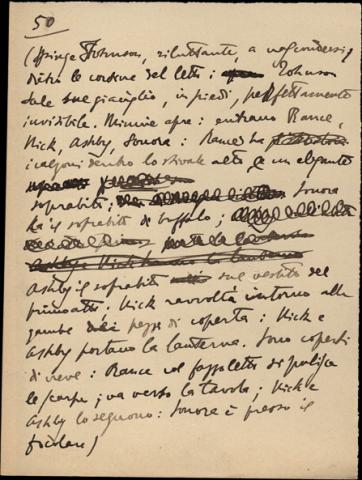 50
(spinge Johnson, riluttante, a nascondersi
dietro le cortine del letto: Johnson
sale sul giaciglio, in piedi, perfettamente
invisibile. Minnie apre: entrano Rance,
Nick, Ashby, Sonora: Rance ha
i calzoni dentro lo stivale alto e un elegante
soprabito; Sonora
ha il soprabito di bufalo;
Ashby il soprabito sul vestito del
primo atto, Nick ravvolta intorno alle
gambe pezze di coperta: Nick e
Ashby portano la lanterna. Sono coperti
di neve: Rance col fazzoletto si pulisce
le scarpe; va verso la tavola; Nick e
Ashby lo seguono: Sonora è presso il
focolare)